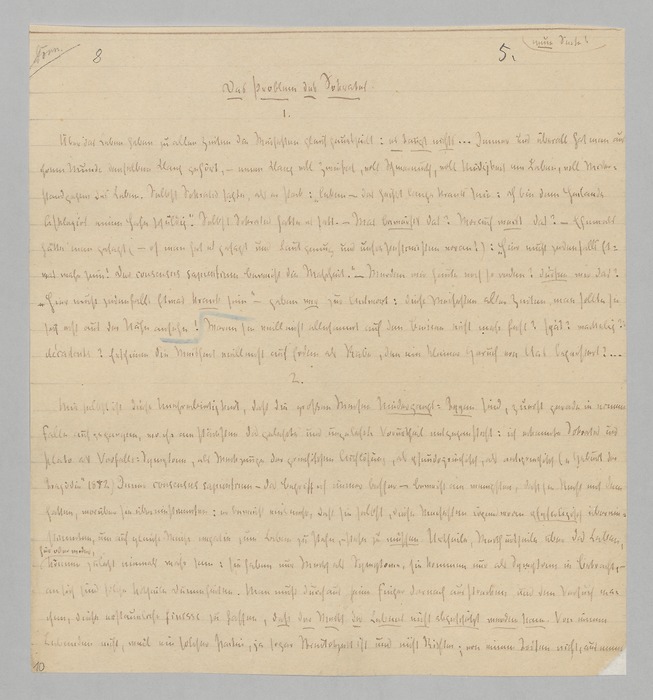 8
5.
Das Problem des Sokrates
1.
Über das Leben haben zu allen Zeiten die Weisesten gleich geurtheilt: es taugt nichts... Immer und überall hat man aus
ihrem Munde denselben Klang gehört, — einen Klang voll Zweifel, voll Schwermuth, voll Müdigkeit am Leben, voll Wider-
stand gegen das Leben. Selbst Sokrates sagte, als er starb: „leben — das heißt lange krank sein: ich bin dem Heilande
Asklepios einen Hahn schuldig". Selbst Sokrates hatte es satt. — Was beweist das? Worauf weist das? — Ehemals
hätte man gesagt (— oh man hat es gesagt und laut genug und unsre Pessimisten voran!): „Hier muß jedenfalls Et-
was wahr sein! Der consensus sapientium beweist die Wahrheit." — Werden wir heute noch so reden? dürfen wir das?
„Hier muß jedenfalls Etwas krank sein" — geben wir zur Antwort: diese Weisesten aller Zeiten, man sollte sie
sich erst aus der Nähe ansehn! Waren sie vielleicht allesammt auf den Beinen nicht mehr fest? spät? wackelig?
décadents? Erschiene die Weisheit vielleicht auf Erden als Rabe, den ein kleiner Geruch von Aas begeistert?...
2.
Mir selbst ist diese Unehrerbietigkeit, daß die großen Weisen Niedergangs-Typen sind, zuerst gerade in einem
Falle aufgegangen, wo ihr am stärksten das gelehrte und ungelehrte Vorurtheil entgegensteht: ich erkannte Sokrates und
Plato als Verfalls-Symptome, als Werkzeuge der griechischen Auflösung, als pseudogriechisch, als antigriechisch („Geburt der
Tragödie" 1872). Jener consensus sapientium — das begriff ich immer besser — beweist am wenigsten, daß sie Recht mit dem
hatten, worüber sie übereinstimmten: er beweist vielmehr, daß sie selbst, diese Weisesten irgend worin physiologisch überein-
stimmten, um auf gleiche Weise negativ zum Leben zu stehn, — stehn zu müssen. Urtheile, Werthurtheile über das Leben,
für oder wider,
können zuletzt niemals wahr sein: sie haben nur Werth als Symptome, sie kommen nur als Symptome in Betracht, —
an sich sind solche Urtheile Dummheiten. Man muß durchaus seine Finger darnach ausstrecken und den Versuch ma-
chen, diese erstaunliche finesse zu fassen, daß der Werth des Lebens nicht abgeschätzt werden kann. Von einem
Lebenden nicht, weil ein solcher Partei, ja sogar Streitobjekt ist und nicht Richter; von einem Todten nicht, aus einem
10